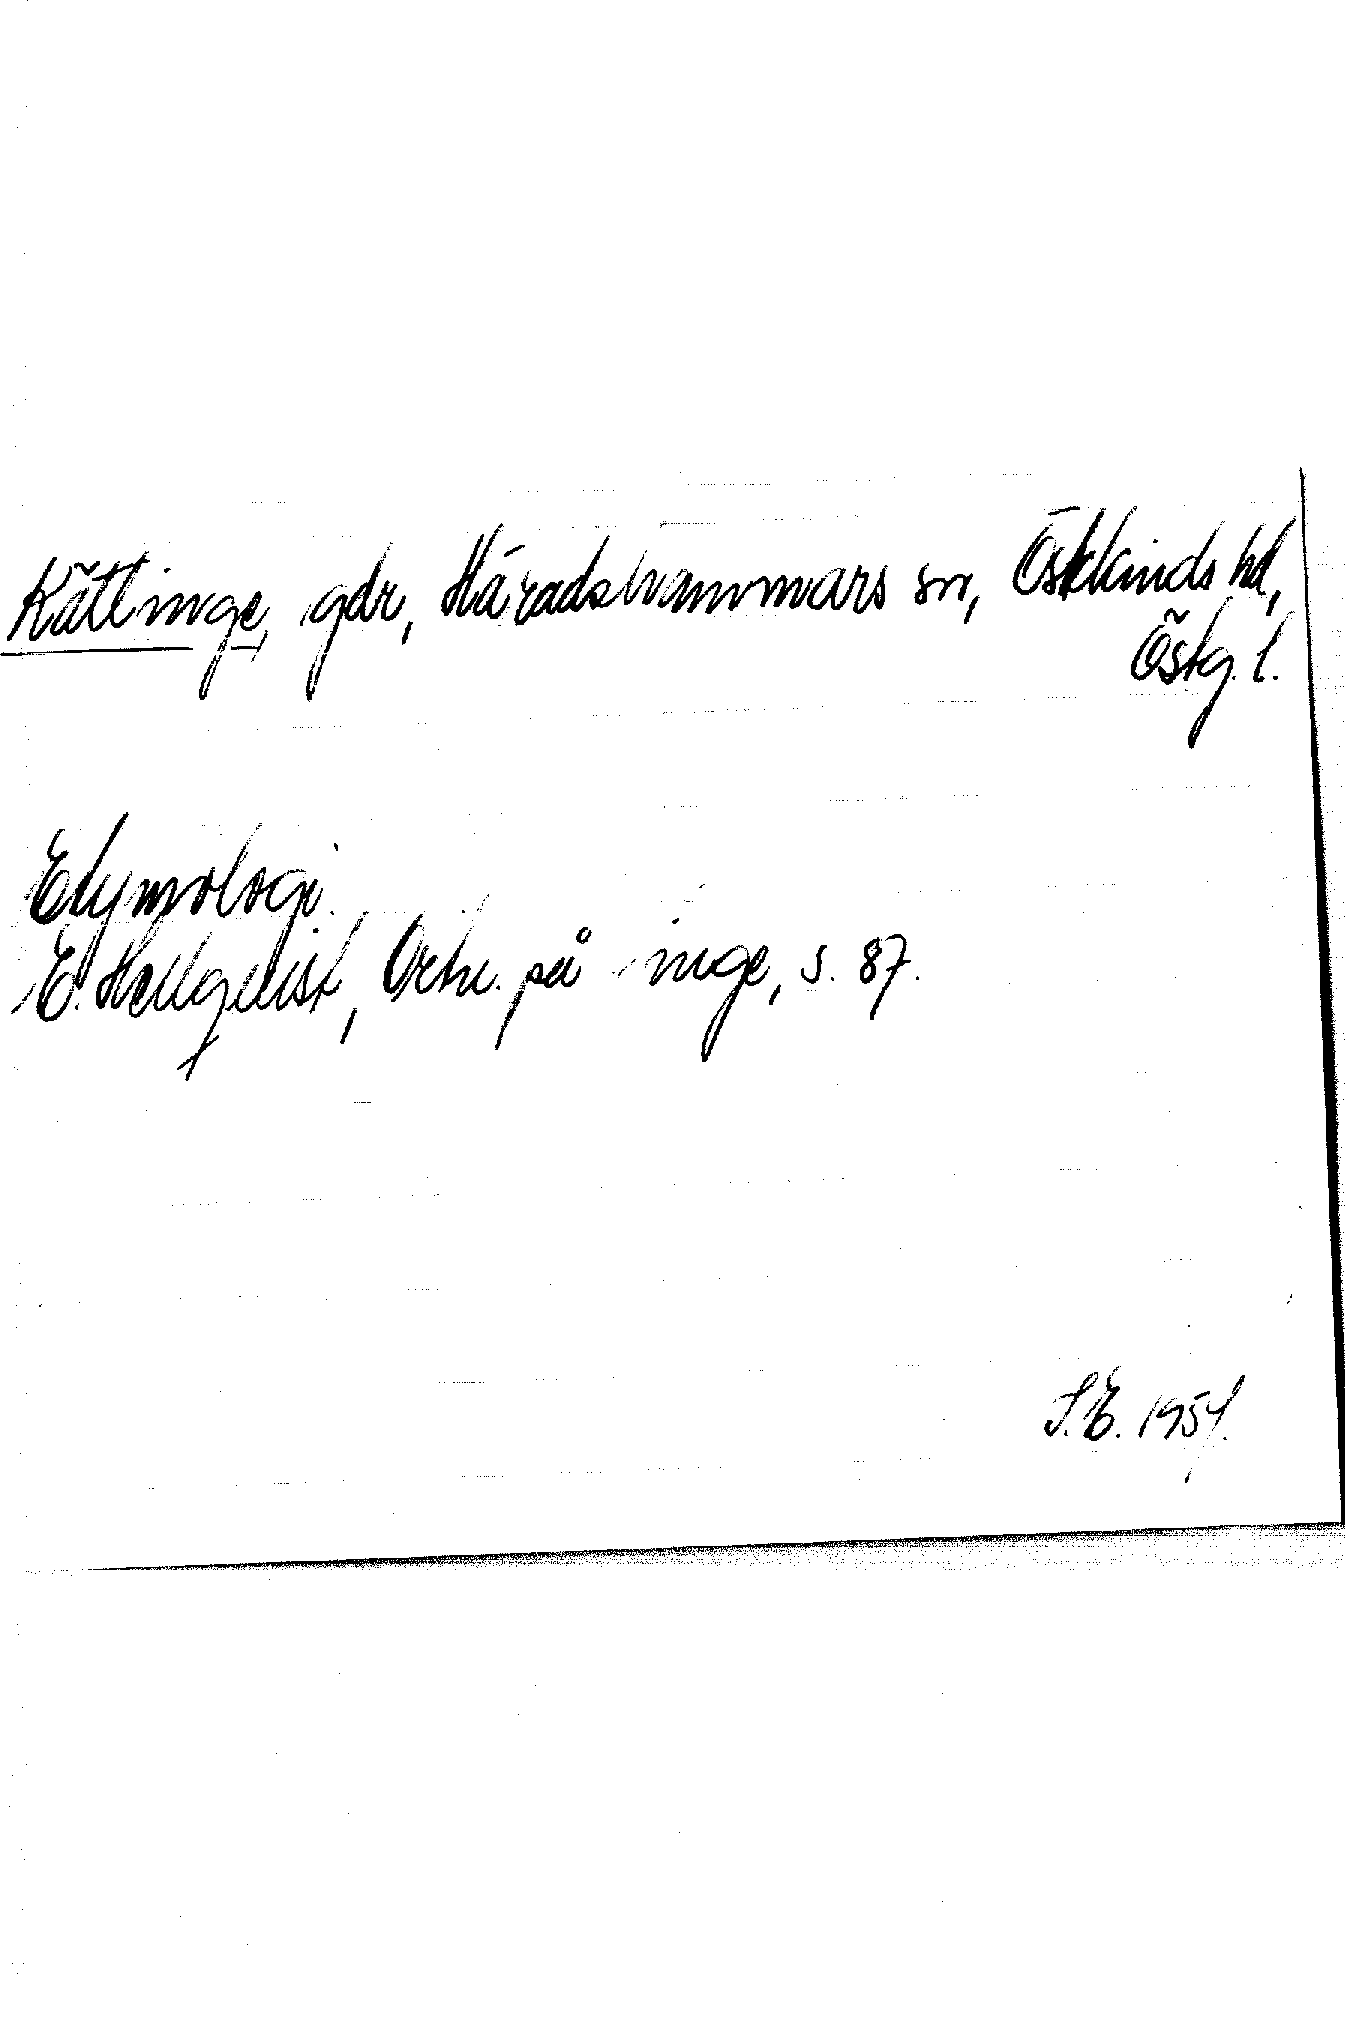 Kättinge, gdr, Häradshammars sn, Östkinds hd,
Östg. l.
Etymologi.
E. Hellquist, Ortn. på -inge, s. 87.
S.E. 1954.